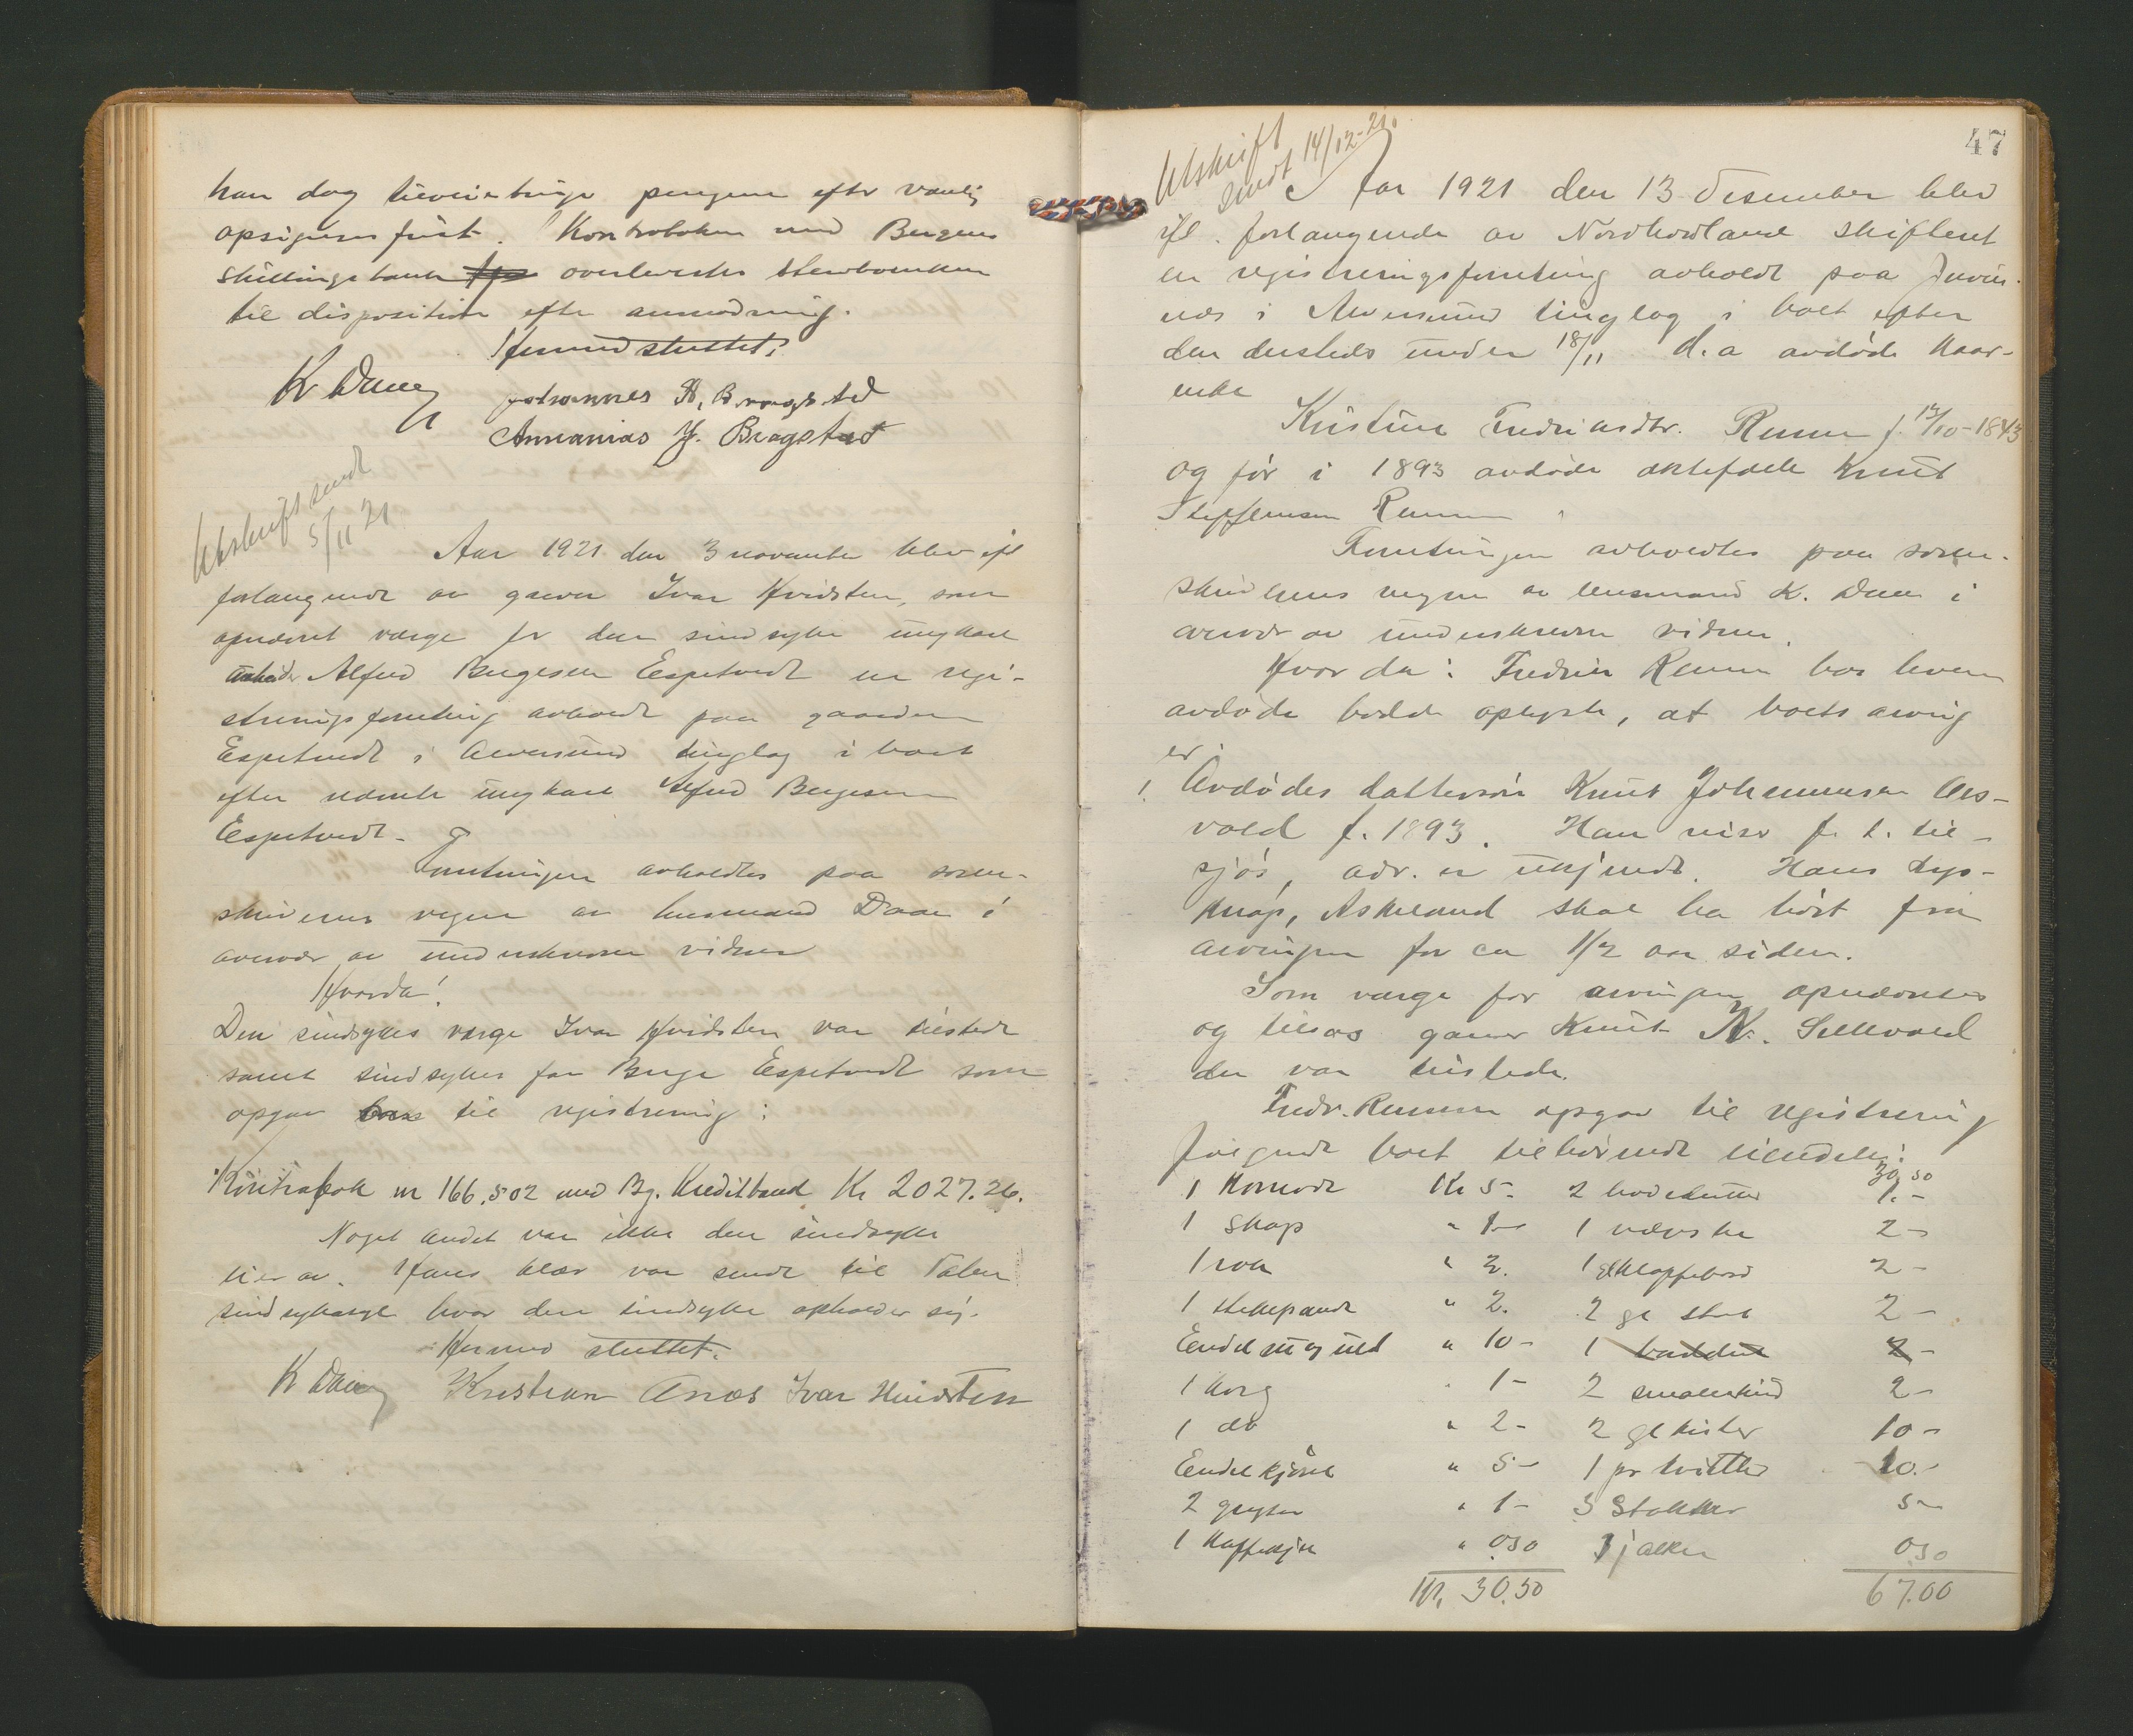 han dog tilveiebringe pengene efter vanlig
opsigelses frist. Kontraboken med Bergens
skillingsbank overleveres
til disposition efter anmodning.
Hermed sluttet.
K Daae
Johannes K. Brragstad
Annanias J. Bragstad
Utskrift sendt
5/11 21
Aar 1921 den 3 november blev ifl
forlangende av gaardbr Ivar Hvidsten, som
opnævnt værge for den sindsyke ungkarl
arbeider Alfred Bergesen Espetvedt en regi-
streringsforretning avholdt paa gaarden
Espetvedt i Alversund tinglag i boet
efter nævnte ungkarl Alfred Bergesen
Espetvedt.
Forretningen avholdtes paa soren-
skriverens vegne av lensmand Daae i
overvær av underskrevne vidner
Hvorda:
Den sindsykes værge Ivar Hvidsten var tilstede
samt sindsykes far Berge Espetvedt som
opgav til registrering:
Kontrabok nr 166.502 med Bg. Kreditbank Kr 2027.26.
Noget andet var ikke den sindsyke
eier av. Hans klær var sendt til
sindsykeasyl hvor den sindsyke opholder sig.
Hermed sluttet.
K Daae Kristian Araas Ivar Hvidsten
47
Utskrift
sendt 14/12-21.
Aar 1921 den 13 desember blev
ifl. forlangende av Nordhordland skifteret
en registreringsforretning avholdt paa
i Alversund tinglag i boet efter
den dersteds under 18/11 d.a avdøde kaar-
enke
Kristine Fredriksdtr. Remme f. 12/10-1843
og før i 1893 avdøde ektefælle Knut
Steffensen Remme
Forretningen avholdtes paa soren-
skriverens vegne av lensmand K. Daae i
overvær av underskrevne vidner.
Hvorda: Fredrik Remme hos hvem
avdøde bodde oplyste, at boets arving
er:
1. Avdødes dattersøn Knut Johannesen Aas-
vold f. 1893. Han reiser f. t. til-
sjøs, adr. er ukjendt. Hans
Askeland skal ha hørt fra
arvingen for ca 1/2 aar siden.
Som værge for arvingen opnævntes
og tilsas gaardbr Knut K. Sellevold
der var tilstede.
Fredr. Remme opgav til registrering
følgende boet tilhørende eiendeler:
30,50
1 Komode Kr 5- 2 1.-
1 skap " 1- 1 vævste 2-
1 rok " 2. 1 klappebord 2-
1 stekepande " 2. 2 gl stol 2-
Endel " 10- 1 2-
1 korg " 1- 2 smaleskind 2-
1 do " 2- 2 gl kister 10-
Endel kjørel " 5- 1 pr 10.-
2 gryter " 1- 3 Stakker 5-
1 Kaffekjel " 0,50 3 jakker 0,50
Kr. 30.50 67.00